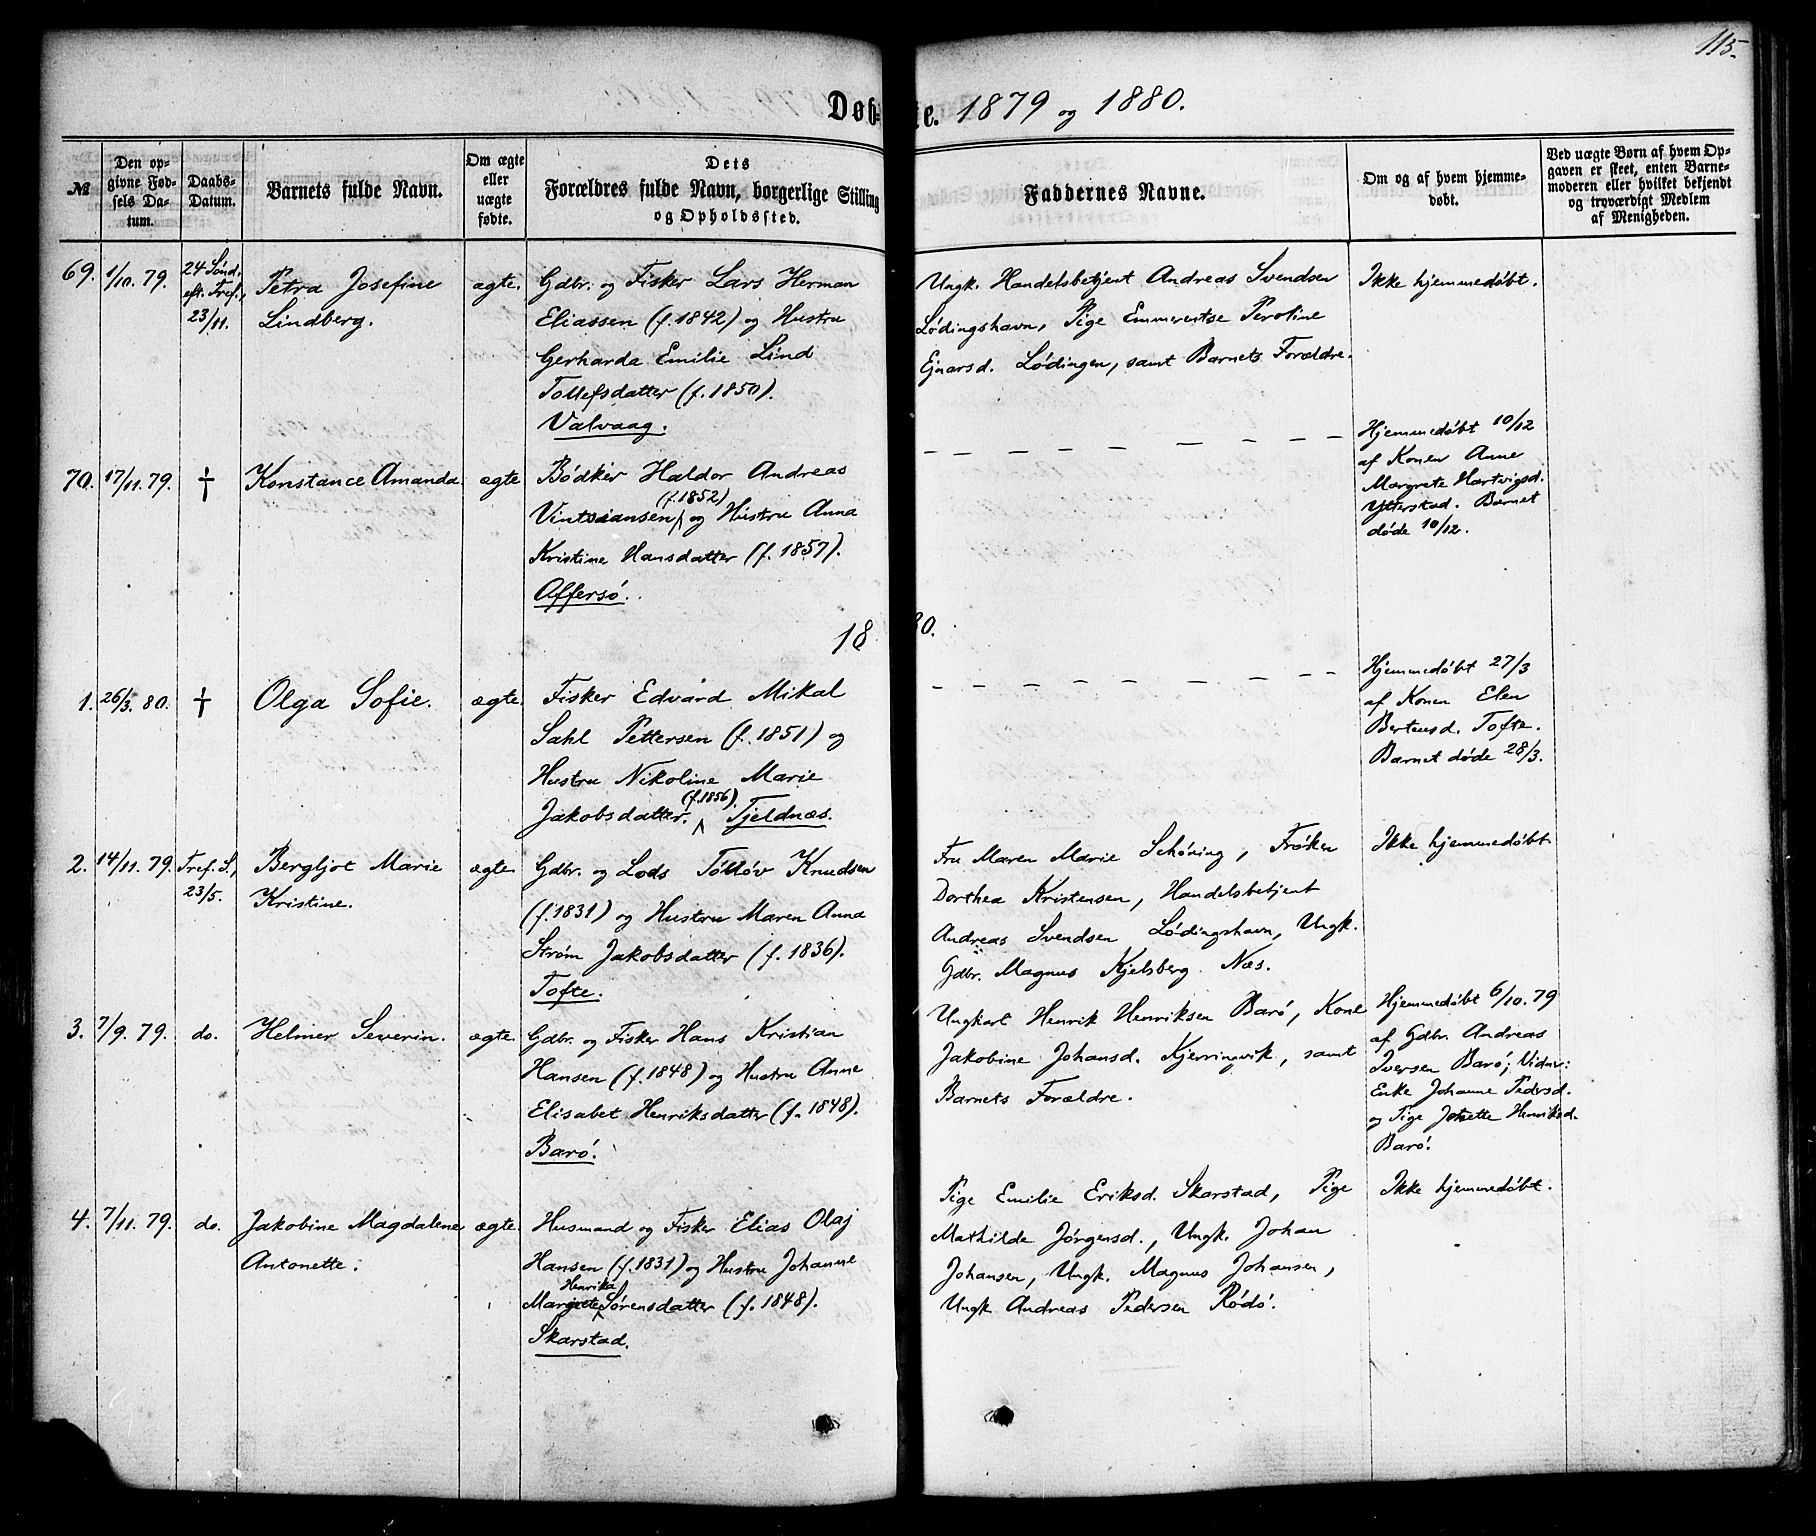 115.
Døb- e. 1879 og 1880.
№
Den opgivne Fødsels Datum.
Daabs-Datum.
Barnets fulde Navn.
Om ægte eller uægte fødte.
Dets Forældres fulde Navn, borgerlige Stilling og Opholdssted.
Faddernes Navne.
Om og af hvem hjemmedøbt.
Ved uægte Børn af hvem Opgaven er skeet, enten Barnemoderen eller hvilket bekjendt og troværdigt Medlem af Menigheden.
69. 1/10. 79.
24 Sönd.
eft. Tref.,
23/11.
Petra Josefine
Lindberg.
ægte.
Gdbr. og Fisker Lars Herman
Eliassen (f. 1842) og Hustru
Gerharda Emilie Lind
Tollefsdatter (f. 1850).
Valvaag.
Ungk. Handelsbetjent Andreas Svendsen
Lødingshavn, Pige Emmerentse Peroline
Ejnarsd. Lødingen, samt Barnets Forældre.
Ikke hjemmedøbt.
70. 17/11. 79.
†
Konstance Amanda.
ægte
Bødker Haldor Andreas
(f. 1852)
Vintsiansen og Hustru Anna
Kristine Hansdatter (f. 1857).
Affersö.
– – – – – – – – – –
Hjemmedøbt 10/12
af Konen Anne
Margrete Hartvigsd.
Ytterstad. Barnet
døde 10/12.
18 80.
1. 26/3. 80.
†
Olga Sofie.
ægte.
Fisker Edvard Mikal
Sahl Pettersen (f. 1851) og
Hustru Nikoline Marie
(f. 1856).
Jakobsdatter. Tjeldnæs.
– – – – – – – – – –
Hjemmedøbt 27/3
af Konen Elen
Bertensd. Tofte.
Barnet døde 28/3.
2. 14/11. 79.
Tref. S.,
23/5.
Bergljot Marie
Kristine.
ægte.
Gdbr. og Lods Tölløv Knudsen
(f. 1831) og Hustru Maren Anna
Strøm Jakobsdatter (f. 1836).
Tofte.
Fru Maren Marie Schöning, Frøken
Dorthea Kristensen, Handelsbetjent
Andreas Svendsen Lødingshavn, Ungk.
Gdbr. Magnus Kjelsberg Næs.
Ikke hjemmedøbt.
3. 7/9. 79.
do.
Helmer Severin.
ægte.
Gdbr. og Fisker Hans Kristian
Hansen (f. 1848) og Hustru Anne
Elisabet Henriksdatter (f. 1848).
Barö.
Ungkarl Henrik Henriksen Barö, Kone
Jakobine Johansd. Kjerringvik, samt
Barnets Forældre.
Hjemmedøbt 6/10. 79
af Gdbr. Andreas
Iversen Barö; Vidner:
Enke Johanne Pedersd.
og Pige Jonette Henriksd.
Barö.
4. 7/11. 79.
do.
Jakobine Magdalene
Antonette.
ægte.
Husmand og Fisker Elias Olaj
Hansen (f. 1831) og Hustru Johanne
Henrika
Margrete Sörensdatter (f. 1848).
Skarstad.
Pige Emilie Eriksd. Skarstad, Pige
Mathilde Jørgensd., Ungk. Johan
Johansen, Ungk. Magnus Johansen,
Ungk. Andreas Pedersen Rødö.
Ikke hjemmedøbt.